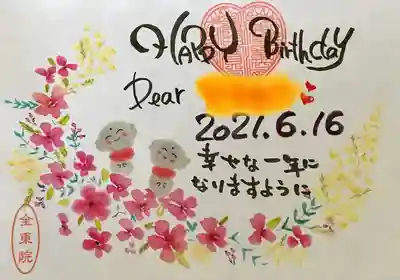 HAPPY Birthday
Dear
2021.6.16
幸せな一年に
なりますように
全東院